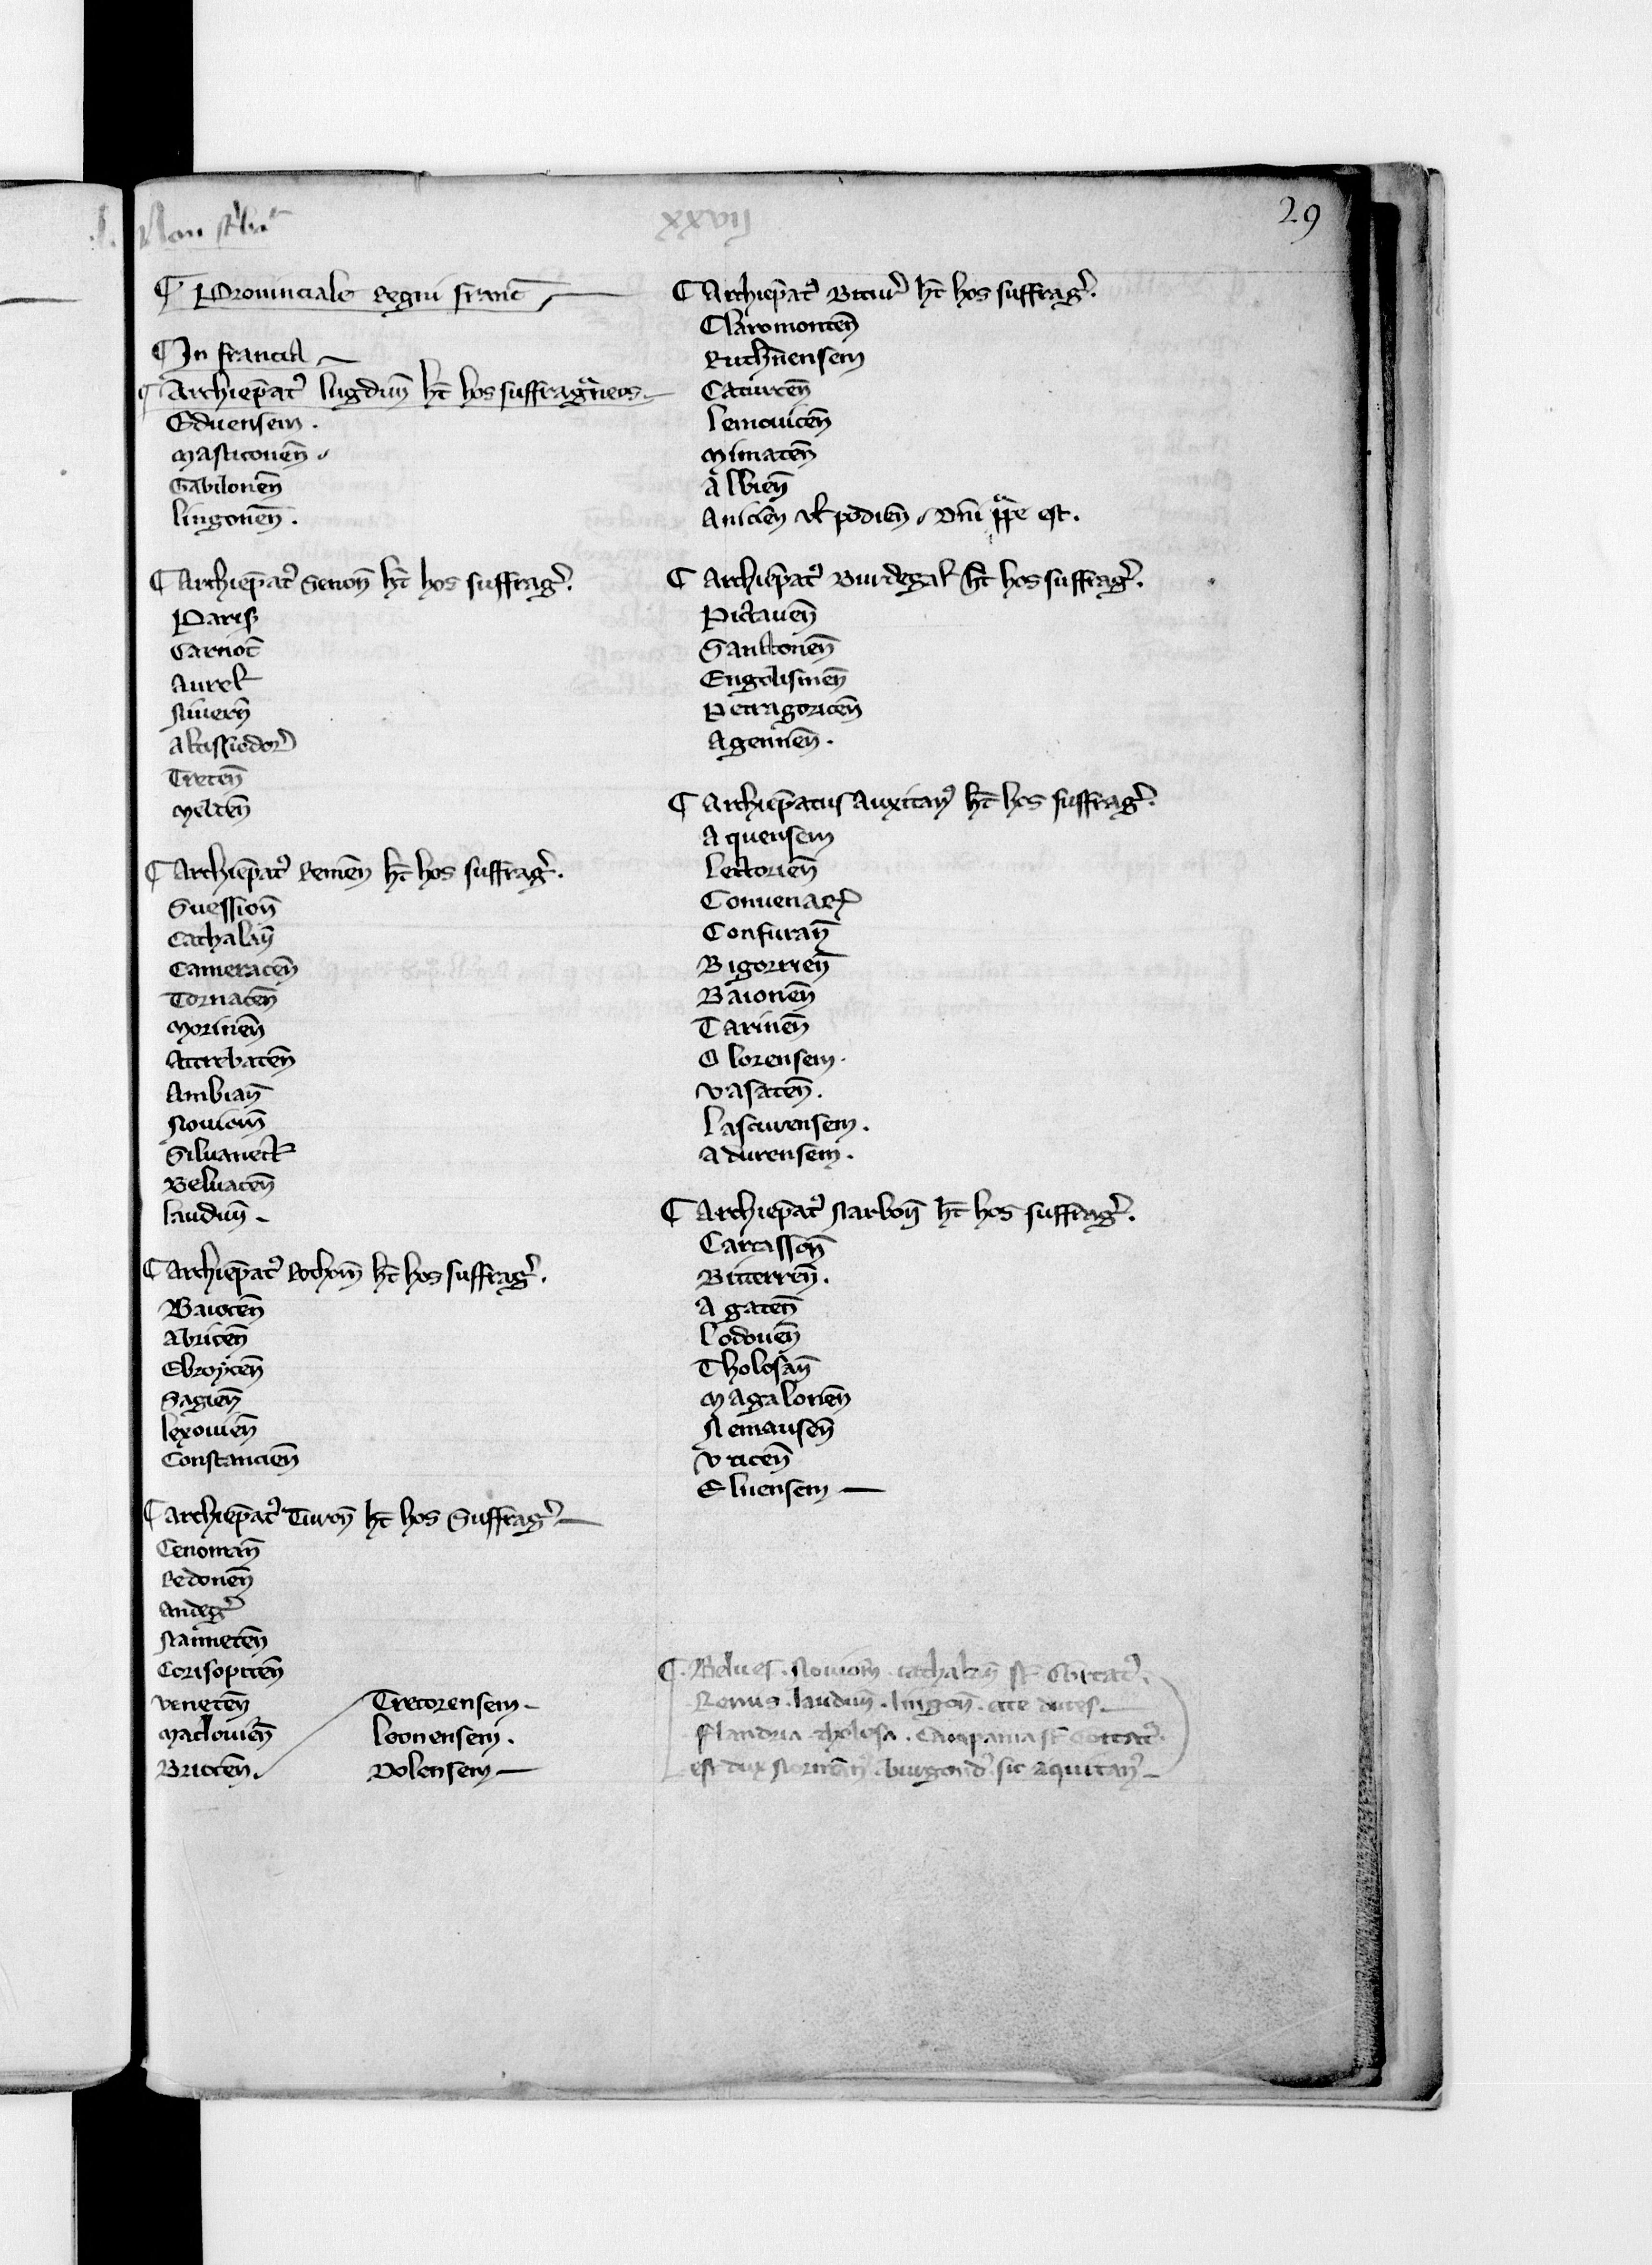 29
¶ Prouinciale regni franc̄
¶ In francia
¶ Archiep̄at᷒ lugdun̄ h̄t hos suffraganeos
Eduensem.
Masticonen̄
Gabilonen̄
lingonen̄.
¶ Archiep̄at᷒ Senon̄ h̄t hos suffrag᷒.
Paris̄
Carnot̄
Aurel̄
Niuern̄
Altissiodor᷒
Trecen̄
Melden̄
¶ Archiep̄at᷒ Remen̄ h̄t hos suffrag᷒.
Suession̄
Cathalan̄
Cameracen̄
Tornacen̄
Morinen̄
Attrebaten̄
Ambian̄
Nouiom̄
Siluanect̄
Beluacen̄
laudun̄
¶ Archiep̄at᷒ Rothom̄ h̄t hos suffrag᷒.
Baiocen̄
Abricen̄
Ebroycen̄
Sagien̄
lexouien̄
Constancien̄
¶ Archiep̄at᷒ Turon̄ h̄t hos Suffrag᷒
Cenoman̄
Redonen̄
Andeg᷒
Nanneten̄
Corisopiten̄
Veneten̄
Maclouien̄
Briocen̄
Trecorensem
leonensem.
Dolensem
¶ Archiep̄at᷒ Bitur᷒ h̄t hos suffrag᷒.
Claromonten̄
Ruthn̄ensem
Caturcen̄
lemouicen̄
Mimaten̄
Albien̄
Anicien̄ vl̄ podien̄ Dn̄i ppe est.
¶ Archiep̄at᷒ Burdegal̄ h̄t hos suffrag᷒.
Pictauen̄
Sanctonen̄
Engolismen̄
Petragoricen̄
Agennen̄.
¶ Archiep̄atus Auxitan᷒ h̄t hos suffrag᷒.
Aquensem
lectorien̄
Conuenar᷒
Consuran̄
Bigorrien̄
Baionen̄
Taruien̄
Olorensem.
Vasaten̄.
lascurensem.
Adurensem.
¶ Archiep̄at᷒ Narbon̄ h̄t hos suffrag᷒.
Carcasson̄
Biterren̄.
Agaten̄
lodouen̄
Tholosan̄
Magalonen̄
Nemausen̄
Vticen̄
Eluensem
¶ Belues. Nouiom̄. cathalan̄ st̄
Remis. laudun̄. lingon̄. duces.
flandria tholosa. Campania st̄
est dux Norman̄. burgond᷒. sic aquitan᷒